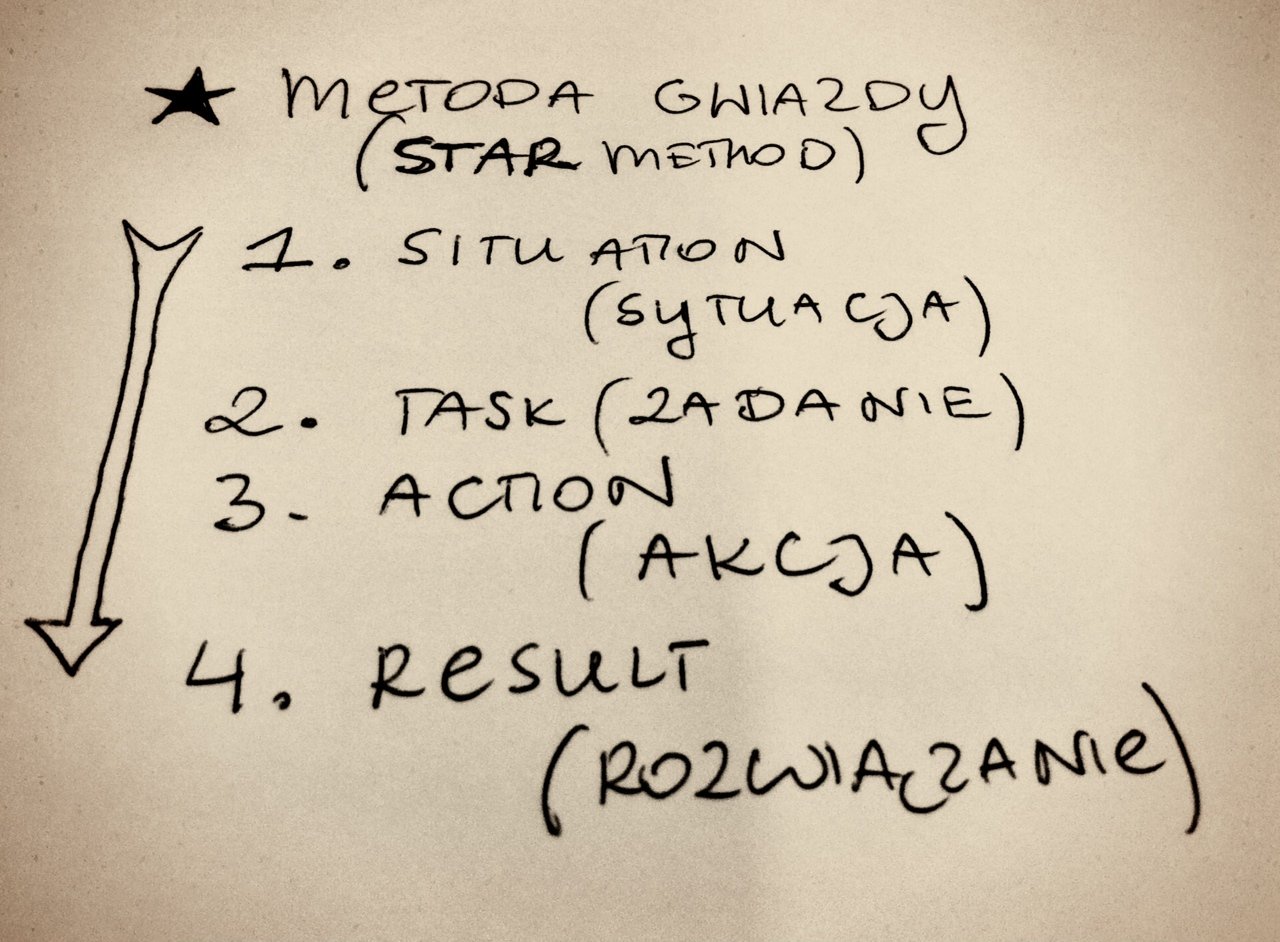 ★ METODA GWIAZDY
(STAR METHOD)
1. SITUATION
(SYTUACJA)
2. TASK (ZADANIE)
3. ACTION
(AKCJA)
4. RESULT
(ROZWIĄZANIE)